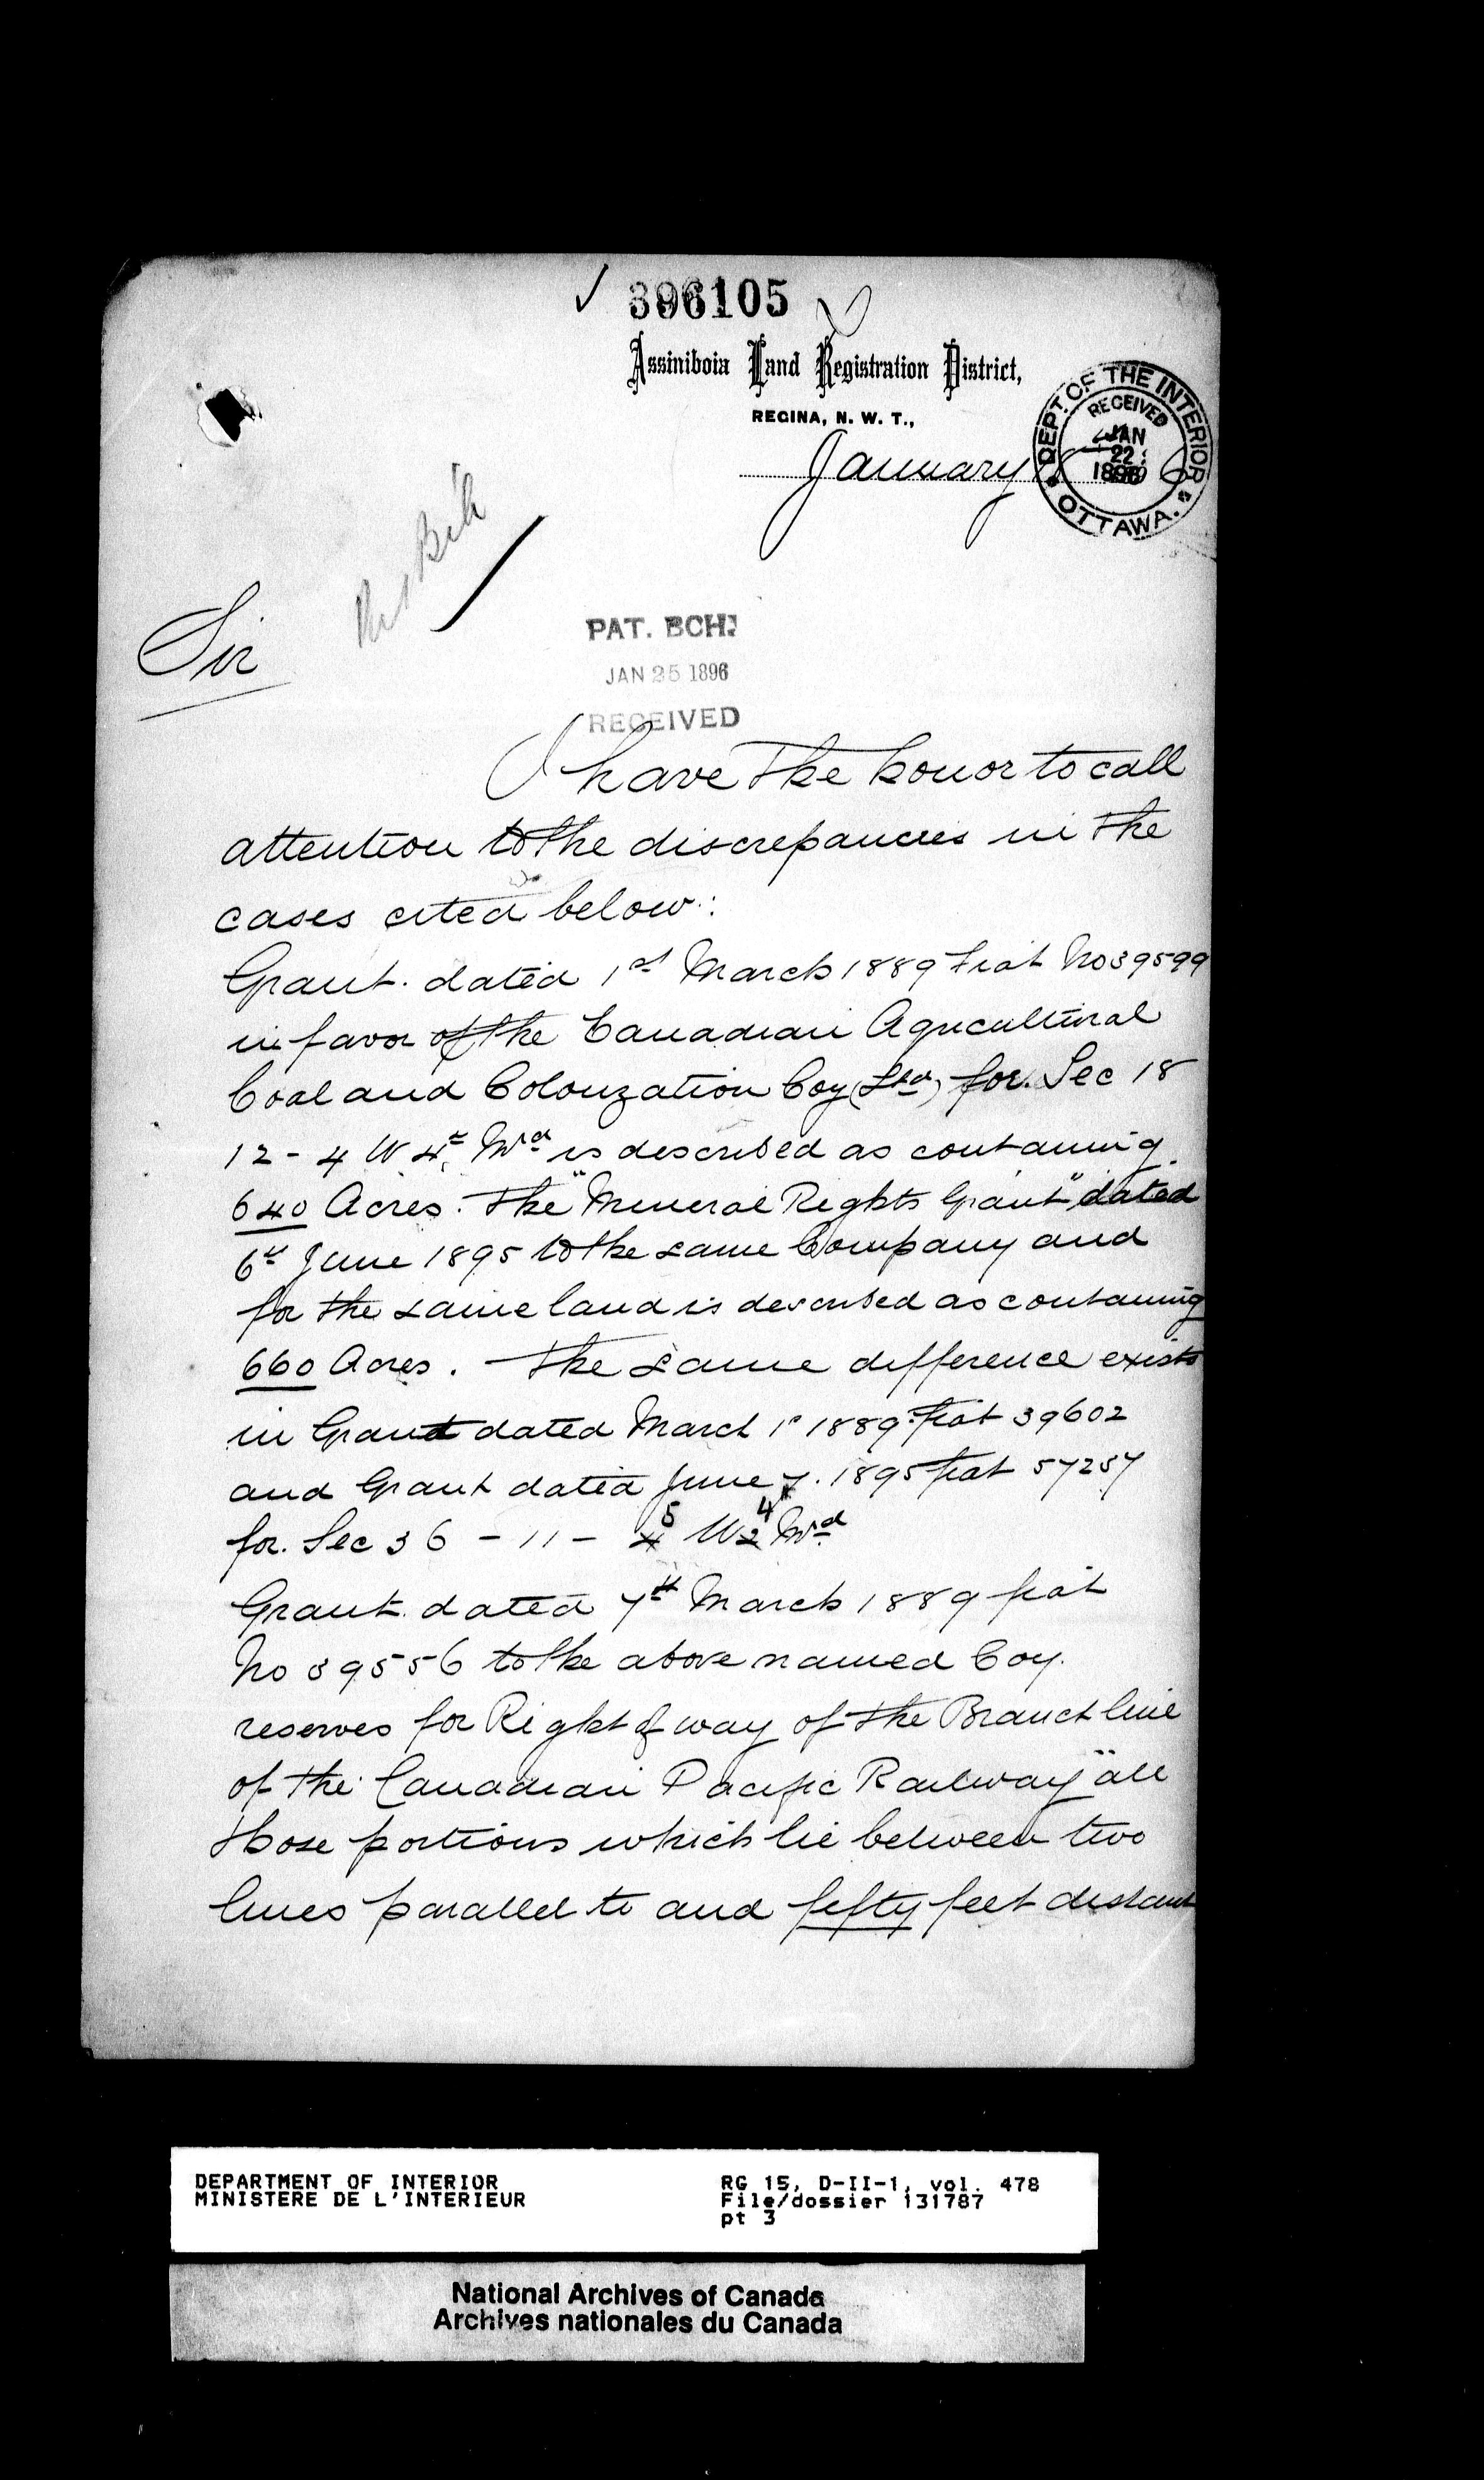 396105
Assiniboia Land Registration District,
REGINA, N. W. T.,
January
DEPT. OF THE INTERIOR
RECEIVED
JAN
22
1896
OTTAWA.
PAT. BCH.
JAN 25 1896
RECEIVED
Sir
I have the honor to call
attention to the discrepancies in the
cases cited below:
Grant dated 1st March 1889 Fiat No 39599
in favor of the Canadian Agricultural
Coal and Colonization Coy (Ltd) for Sec 18
12 - 4 W 4th Mrd is described as containing
640 Acres. The "Mineral Rights Grant" dated
6th June 1895 to the same Company and
for the same land is described as containing
660 Acres. The same difference exists
in Grant dated March 1st 1889 fiat 39602
and Grant dated June 7. 1895 fiat 57257
for Sec 36 - 11 - 5 W 4 Mrd
Grant dated 7th March 1889 fiat
No 39556 to the above named Coy.
reserves for Right of way of the Branch line
of the Canadian Pacific Railway "all
those portions which lie between two
lines parallel to and fifty feet distant
DEPARTMENT OF INTERIOR
MINISTERE DE L'INTERIEUR
RG 15, D-II-1, vol. 478
File/dossier 131787
pt 3
National Archives of Canada
Archives nationales du Canada